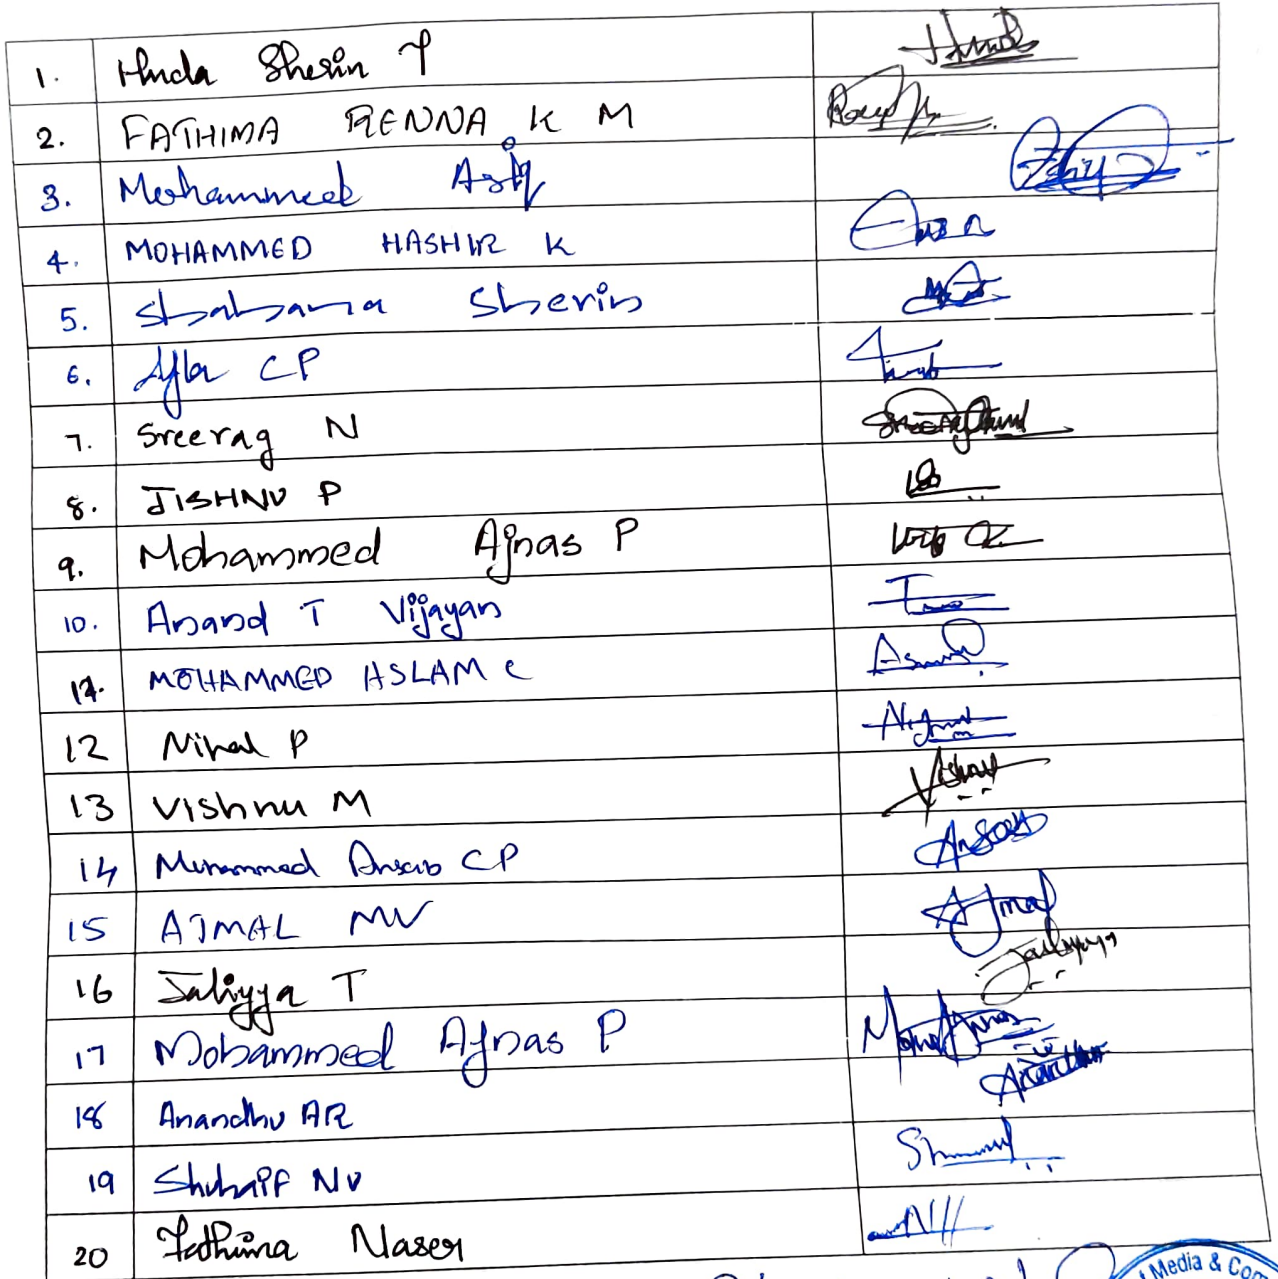 1. Hinda Sherin T
2. FATHIMA RENNA K M
3. Mohammed Asiq
4. MOHAMMED HASHIR K
5. Shabana Sherin
6. Afla CP
7. Sreerag N
8. JISHNU P
9. Mohammed Ajnas P
10. Anand T Vijayan
11. MOHAMMED ASLAM C
12 Nihal P
13 Vishnu M Vishnu
14 Muhammed Ansab CP Ansab
15 AJMAL MV Ajmal
16 Jaliyya T Jaliyya
17 Mohammed Ajnas P
18 Anandhu AR Anandhu
19 Shuhaif NV
20 Fathima Naser
Media & Com